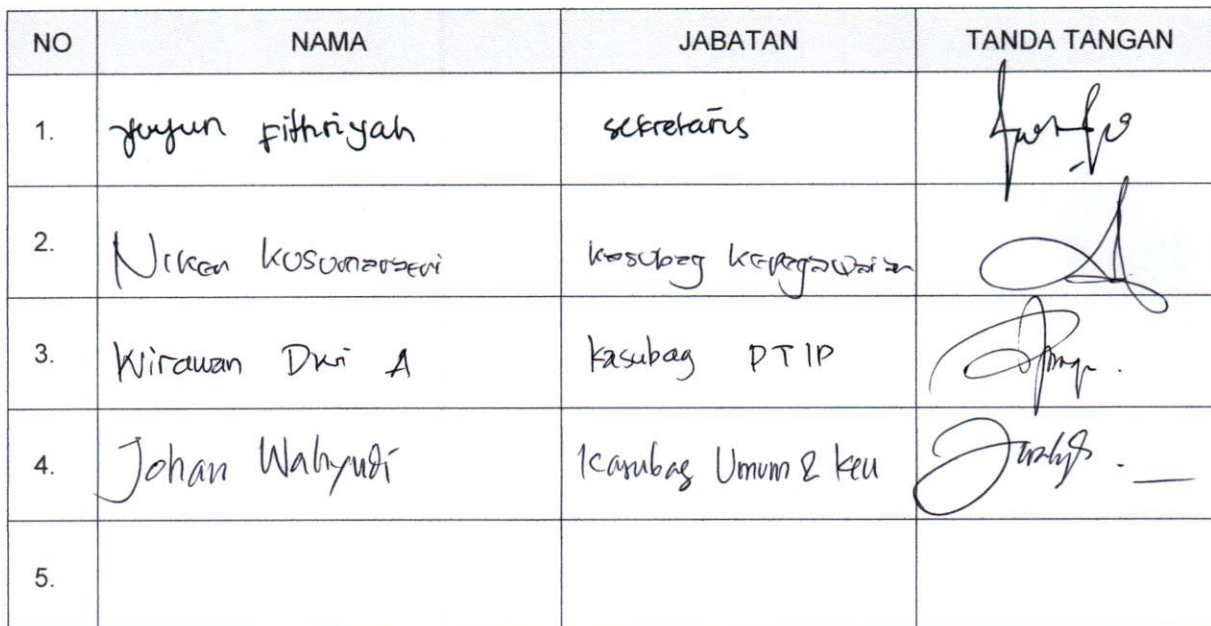 NO NAMA JABATAN TANDA TANGAN
1. Yuyun Fithriyah sekretaris
2. Niken Kusumarseni Kasubag Kepegawaian
3. Wirawan Dwi A Kasubag PTIP
4. Johan Wahyudi Kasubag Umum & Keu
5.